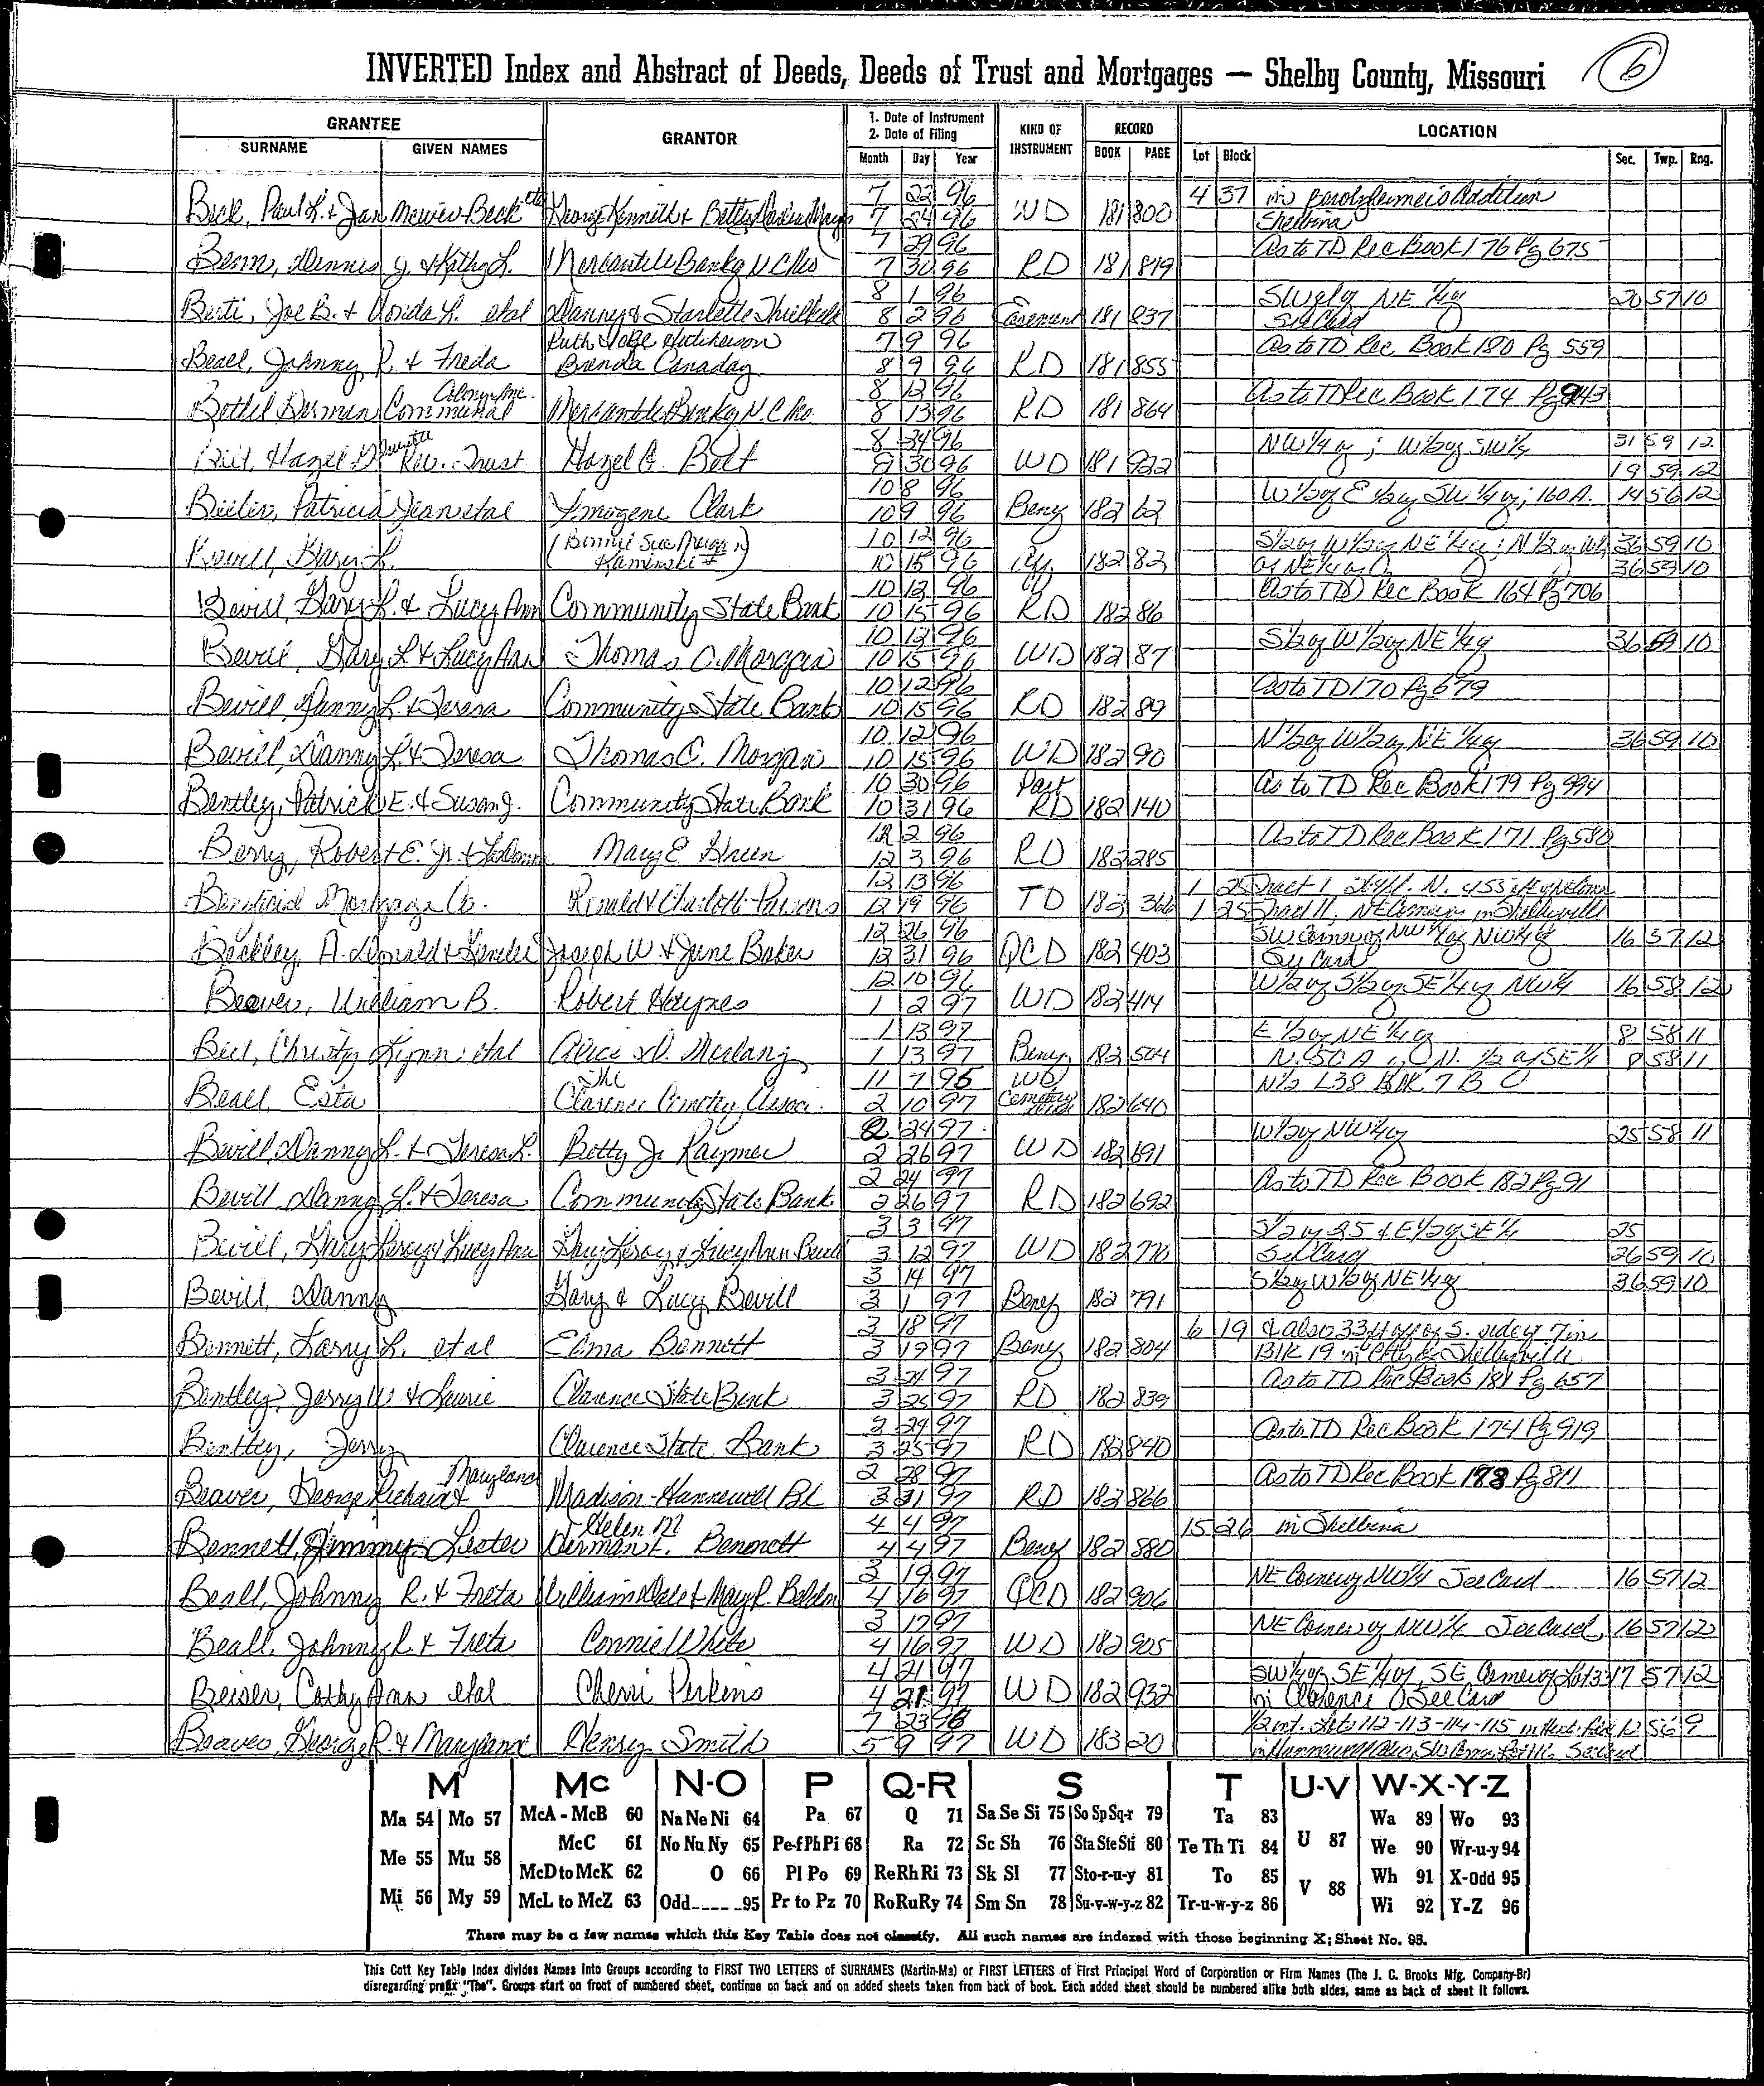 INVERTED Index and Abstract of Deeds, Deeds of Trust and Mortgages — Shelby County, Missouri 6
GRANTEE GRANTOR 1. Date of Instrument 2. Date of Filing KIND OF INSTRUMENT RECORD LOCATION
SURNAME GIVEN NAMES Month Day Year BOOK PAGE Lot Block Sec. Twp. Rng.
7 22 96 4 37 in Addition
Beck, Paul L. & Jan Beck George Kenneth & Betty 7 24 96 WD 181 800 Shelbina
7 29 96 As to TD Rec Book 176 Pg 675
Benn, Dennis J. & Kathy L. Mercantile Bank of N C Mo 7 30 96 RD 181 819
8 1 96 NE 1/4 of 20 57 10
Joe B. & L. etal Danny & Starlette Threlkeld 8 2 96 Easement 181 837 See Card
Ruth Hutcherson 7 9 96 As to TD Rec Book 180 Pg 559
Beall, Johnny R. & Freda Brenda Canaday 8 9 96 RD 181 855
Colony Inc. 8 12 96 As to TD Rec Book 174 Pg 943
Bethel German Communal Mercantile Bank of N.C. Mo. 8 13 96 RD 181 864
8 24 96 NW 1/4 of ; W 1/2 of SW 1/4 31 59 12
Hazel Rev. Trust Hazel G. 8 30 96 WD 181 922 19 59 12
10 8 96 W 1/2 of E 1/2 of SW 1/4 of; 160 A. 14 56 12
Patricia Jean etal Imogene Clark 10 9 96 Benef 182 62
(Bonnie Sue 10 12 96 S 1/2 of W 1/2 of NE 1/4 of ; N 1/2 of W 1/2 36 59 10
Bevill, Gary L. Kaminski) 10 15 96 Aff 182 82 of NE 1/4 of 36 59 10
10 12 96 As to TD Rec Book 164 Pg 706
Bevill, Gary L. & Lucy Ann Community State Bank 10 15 96 RD 182 86
10 12 96 S 1/2 of W 1/2 of NE 1/4 of 36 59 10
Bevill, Gary L & Lucy Ann Thomas C. Morgan 10 15 96 WD 182 87
10 12 96 As to TD 170 Pg 679
Bevill, Danny L. & Teresa Community State Bank 10 15 96 RD 182 89
10 12 96 N 1/2 of W 1/2 of NE 1/4 of 36 59 10
Bevill, Danny L. & Teresa Thomas C. Morgan 10 15 96 WD 182 90
10 30 96 Part As to TD Rec Book 179 Pg 994
Bentley, Patrick E. & Susan J. Community State Bank 10 31 96 RD 182 140
12 2 96 As to TD Rec Book 171 Pg 580
Berry, Robert E. Jr. & Mary E Green 12 3 96 RD 182 285
12 13 96 1 25 Tract 1, N.
Beneficial Mortgage Co. Ronald & Charlotte Parsons 12 19 96 TD 182 366 1 25 Tract II, NE Corner in Shelbyville
12 26 96 SW Corner of NW 1/4 of NW 1/4 of 16 57 12
Beckley, A. Donald & Joseph W. & June Baker 12 31 96 QCD 182 403 See Card
12 10 96 W 1/2 of S 1/2 of SE 1/4 of NW 1/4 16 58 12
Beaver, William B. Robert Haynes 1 2 97 WD 182 414
1 13 97 E 1/2 of NE 1/4 of 8 58 11
Christy Lynn etal Alice D. 1 13 97 Benef 182 504 N. 50 A N. 1/2 of SE 1/4 8 58 11
The 11 7 95 WD N 1/2 L38 Blk 7 B O
Beall, Esta Clarence Cemetery Assoc. 2 10 97 Cemetery Deed 182 640
2 24 97 W 1/2 of NW 1/4 of 25 58 11
Bevill, Danny L. & Teresa L. Betty J. Raymer 2 26 97 WD 182 691
2 24 97 As to TD Rec Book 182 Pg 91
Bevill, Danny L. & Teresa Community State Bank 2 26 97 RD 182 692
3 3 97 S 1/2 of 25 & E 1/2 of SE 1/4 25
Bevill, Gary Leroy & Lucy Ann Gary Leroy & Lucy Ann Bevill 3 12 97 WD 182 770 See Card 26 59 10
3 14 97 S 1/2 of W 1/2 of NE 1/4 of 36 59 10
Bevill, Danny Gary & Lucy Bevill 3 1 97 Benef 182 791
3 18 97 6 19 & also 33 ft off of S. side of 7 in
Bennett, Larry L. et al Elma Bennett 3 19 97 Benef 182 804 Blk 19 in City of Shelbyville
3 24 97 As to TD Rec Book 181 Pg 657
Bentley, Jerry W. & Laurie Clarence State Bank 3 25 97 RD 182 839
3 24 97 As to TD Rec Book 174 Pg 919
Bentley, Jerry Clarence State Bank 3 25 97 RD 182 840
Maryland 2 28 97 As to TD Rec Book 178 Pg 811
Beaver, George Richard & Madison-Hunnewell Bk 3 31 97 RD 182 866
Helen M 4 4 97 15 26 in Shelbina
Bennett, Jimmy Lester Herman L. Bennett 4 4 97 Benef 182 880
3 19 97 NE Corner of NW 1/4 See Card 16 57 12
Beall, Johnny R. & Freta William Dale & Mary R. 4 16 97 QCD 182 906
3 17 97 NE Corner of NW 1/4 See Card 16 57 12
Beall, Johnny R. & Freta Connie White 4 16 97 WD 182 905
4 21 97 SW 1/4 of SE 1/4 of, SE Corner of Lot 3 17 57 12
Beiser, Cathy Ann etal Cherri Perkins 4 21 97 WD 182 932 in Clarence See Card
7 23 96 1/2 int. Lots 112-113-114-115 in 12 56 9
Beaver, George R. & Maryland Henry Smith 5 9 97 WD 183 20 in Hunnewell SW Corner See Card
M Mc N-O P Q-R S T U-V W-X-Y-Z
Ma 54 Mo 57 McA - McB 60 Na Ne Ni 64 Pa 67 Q 71 Sa Se Si 75 So Sp Sq-r 79 Ta 83 U 87 Wa 89 Wo 93
McC 61 No Nu Ny 65 Pe-f Ph Pi 68 Ra 72 Sc Sh 76 Sta Ste Sti 80 Te Th Ti 84 We 90 Wr-u-y 94
Me 55 Mu 58 McD to McK 62 O 66 Pl Po 69 Re Rh Ri 73 Sk Sl 77 Sto-r-u-y 81 To 85 V 88 Wh 91 X-Odd 95
Mi 56 My 59 McL to McZ 63 Odd 95 Pr to Pz 70 Ro Ru Ry 74 Sm Sn 78 Su-v-w-y-z 82 Tr-u-w-y-z 86 Wi 92 Y-Z 96
There may be a few names which this Key Table does not classify. All such names are indexed with those beginning X; Sheet No. 95.
This Cott Key Table Index divides Names Into Groups according to FIRST TWO LETTERS of SURNAMES (Martin-Ma) or FIRST LETTERS of First Principal Word of Corporation or Firm Names (The J. C. Brooks Mfg. Company-Br)
disregarding prefix "The". Groups start on front of numbered sheet, continue on back and on added sheets taken from back of book. Each added sheet should be numbered alike both sides, same as back of sheet it follows.